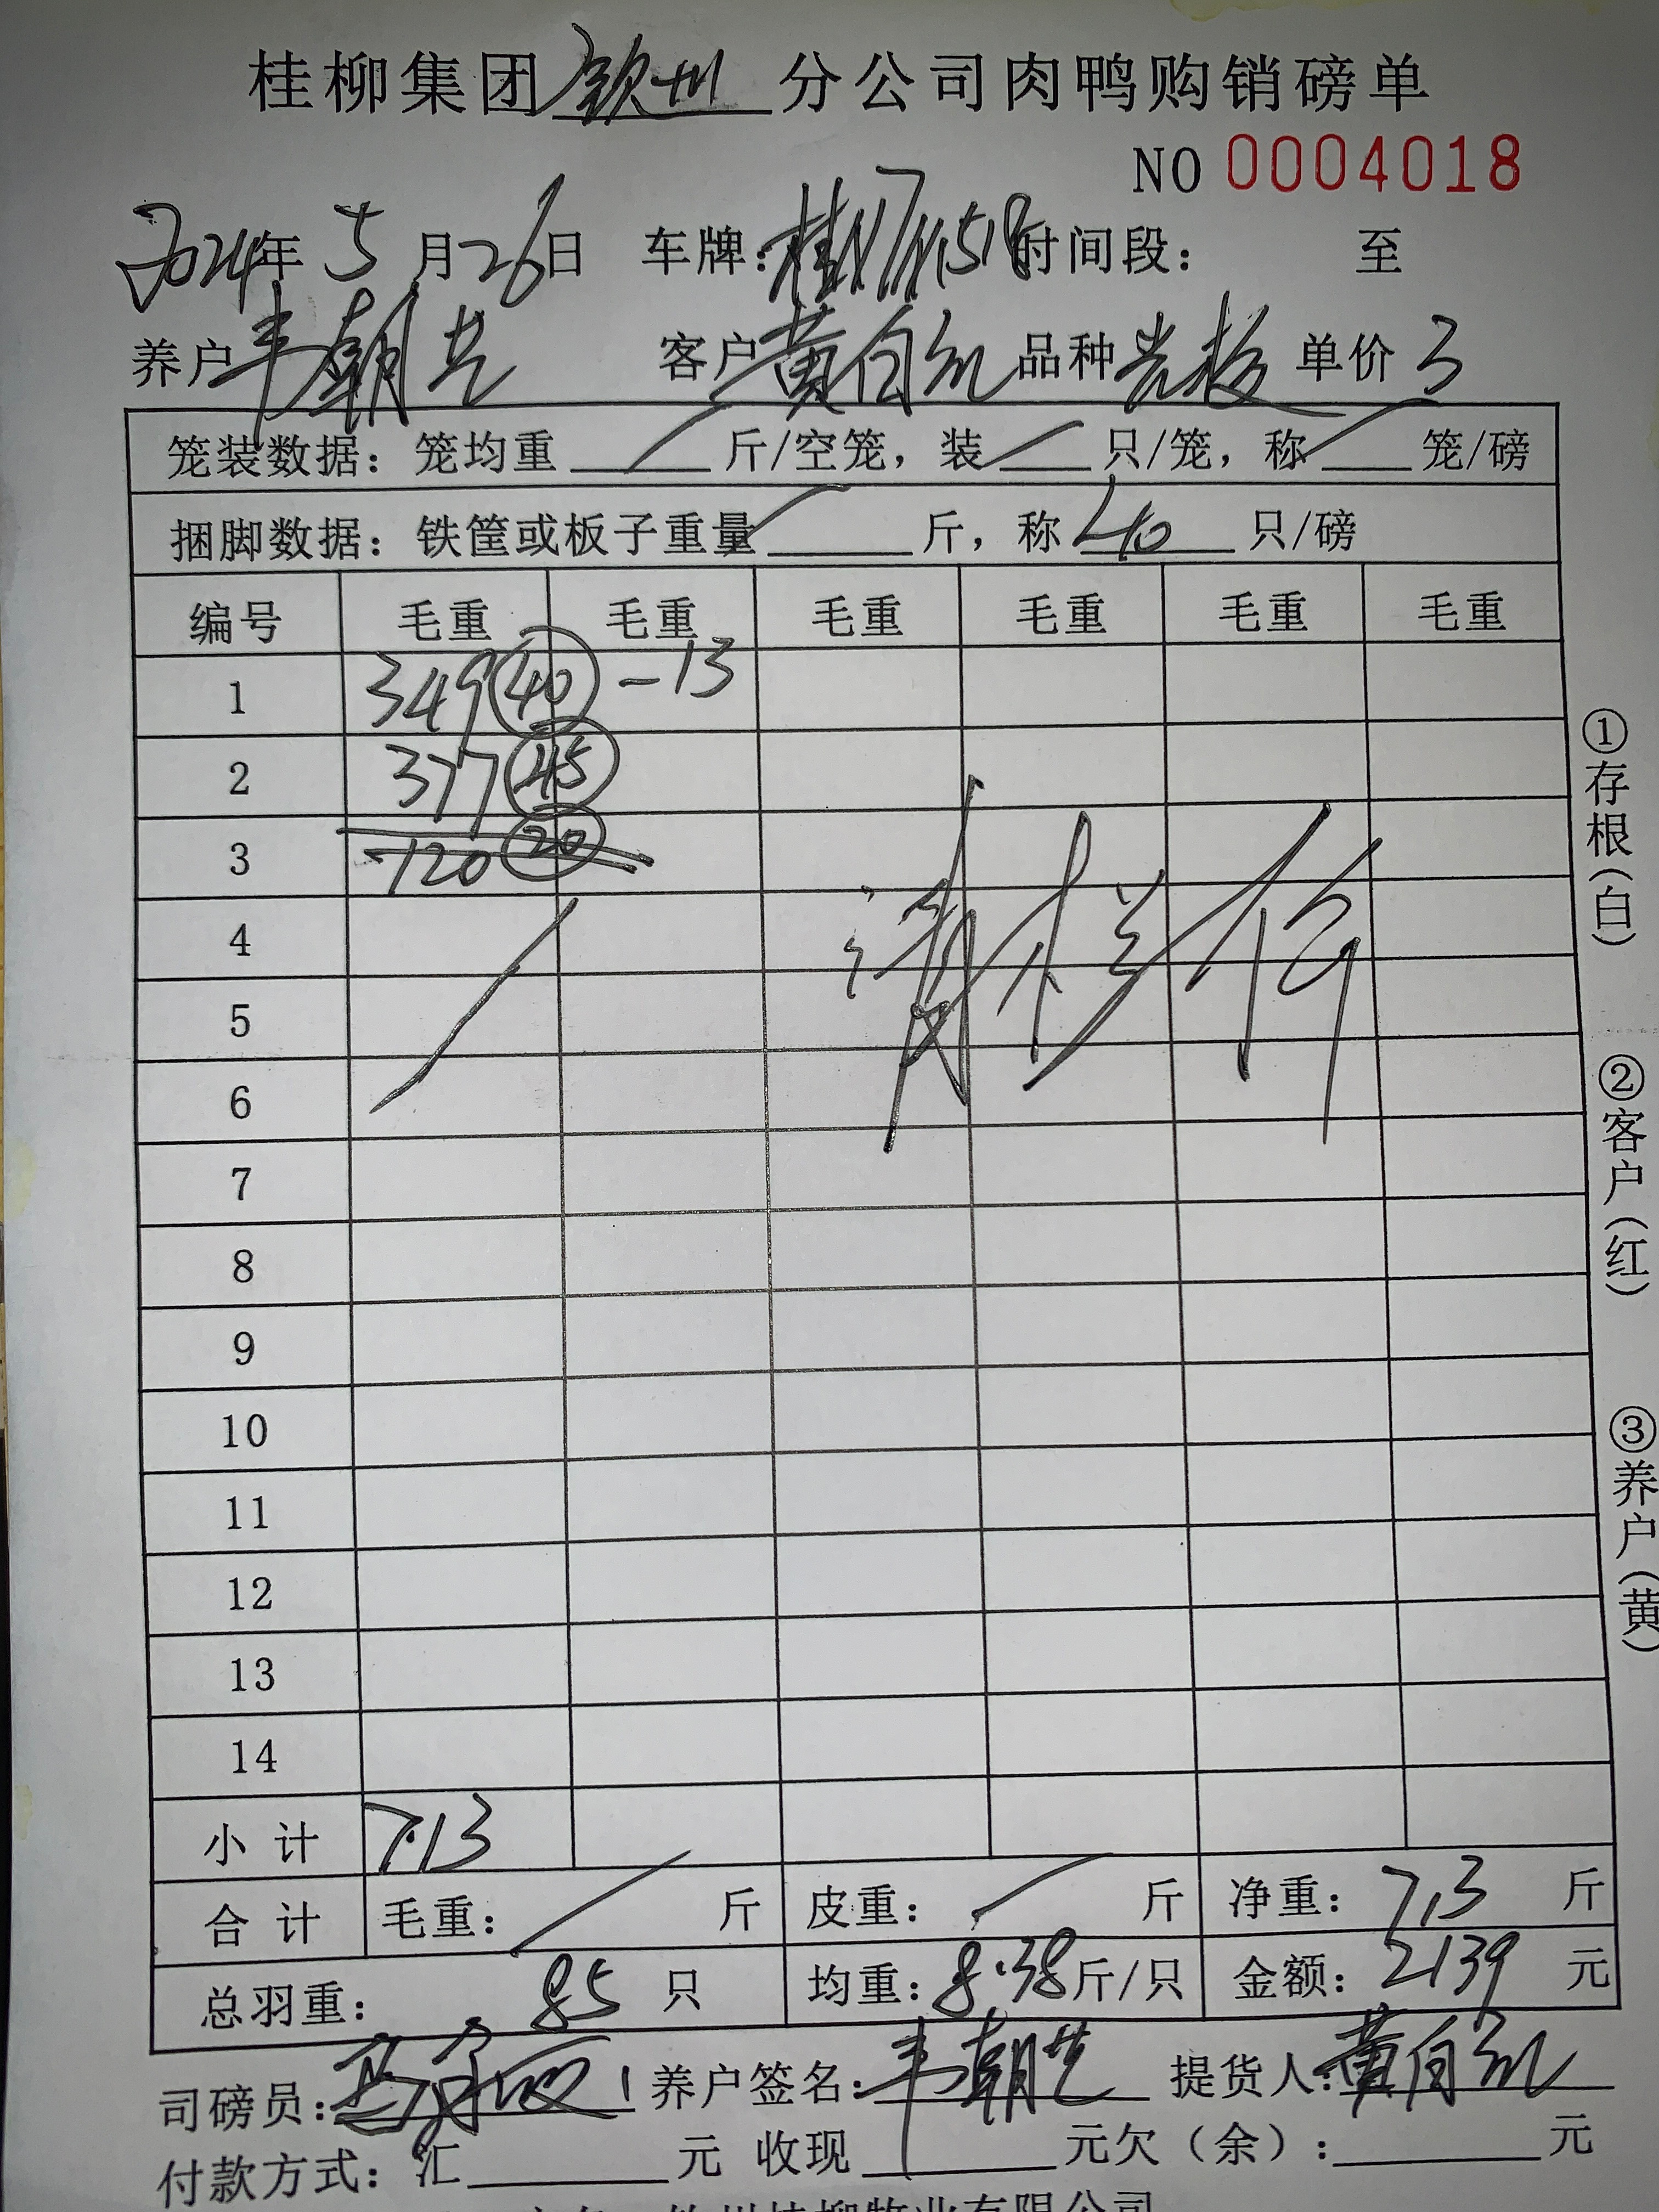 桂柳集团钦州分公司肉鸭购销磅单
NO 0004018
2024年5月26日 车牌:桂N 时间段: 至
养户韦朝 客户黄白 品种 单价3
笼装数据: 笼均重 斤/空笼, 装 只/笼, 称 笼/磅
捆脚数据: 铁筐或板子重量 斤, 称40只/磅
编号 毛重 毛重 毛重 毛重 毛重 毛重
1 349 40 -13
2 377 45
3 120 20
4
5
6
清栏价
7
8
9
10
11
12
13
14
小计 713
合计 毛重: 斤 皮重: 斤 净重: 713 斤
总羽重: 85 只 均重: 8.38斤/只 金额: 2139 元
司磅员: 养户签名:韦朝 提货人:黄白
付款方式: 汇 元 收现 元欠(余): 元
①存根(白)
②客户(红)
③养户(黄)